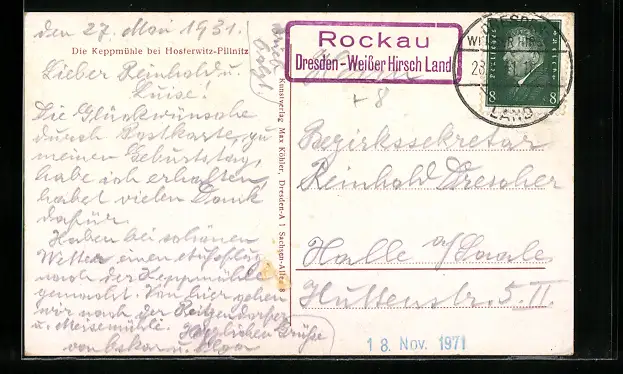 den 27. Mai 1931.
Die Keppmühle bei Hosterwitz-Pillnitz
Lieber Reinhold u.
Luise!
Die Glückwünsche
durch Postkarte, zu
meinen Geburtstag,
habe ich erhalten,
habet vielen Dank
dafür.
Haben bei schönen
Wetter einen Ausflug
nach der Keppmühle
gemacht. Von hier gehen
wir nach der
u. Meixmühle. Herzlichen Grüße
von Oskar u. Olga
Kunstverlag Max Köhler, Dresden-A 1 Sachsen-Allee 8
Rockau
Dresden-Weißer Hirsch Land
DRESDEN
LAND
8 8
Herrn
Bezirkssekretär
Reinhold Drescher
Halle a/Saale
Huttenstr. 5. II.
18. Nov. 1971